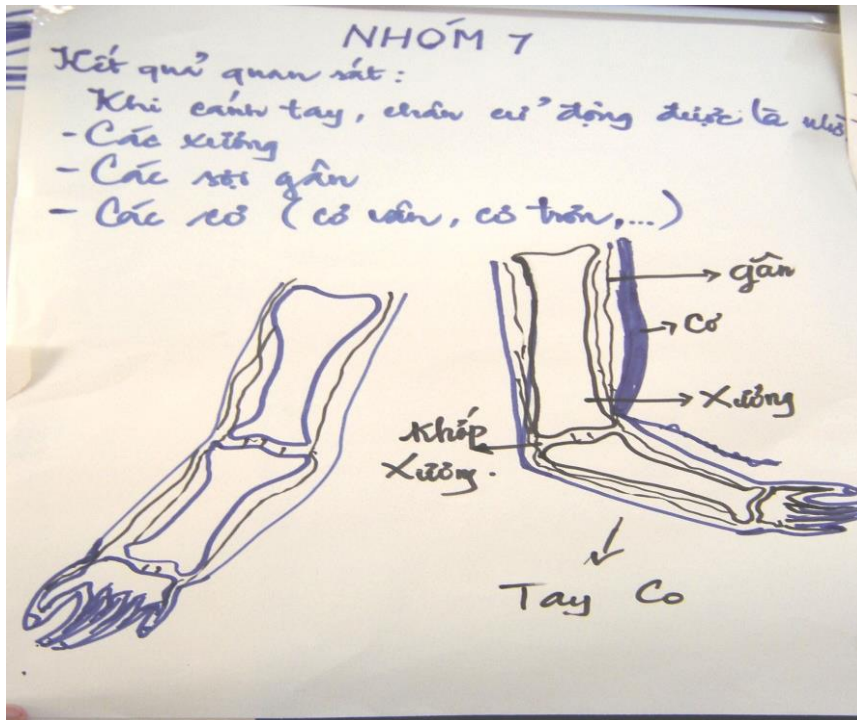 NHÓM 7
Kết quả quan sát:
Khi cánh tay, chân cử động được là nhờ
- Các xương
- Các sợi gân
- Các cơ (cơ vân, cơ trơn,...)
gân
Cơ
Xương
Khớp
Xương.
Tay Co